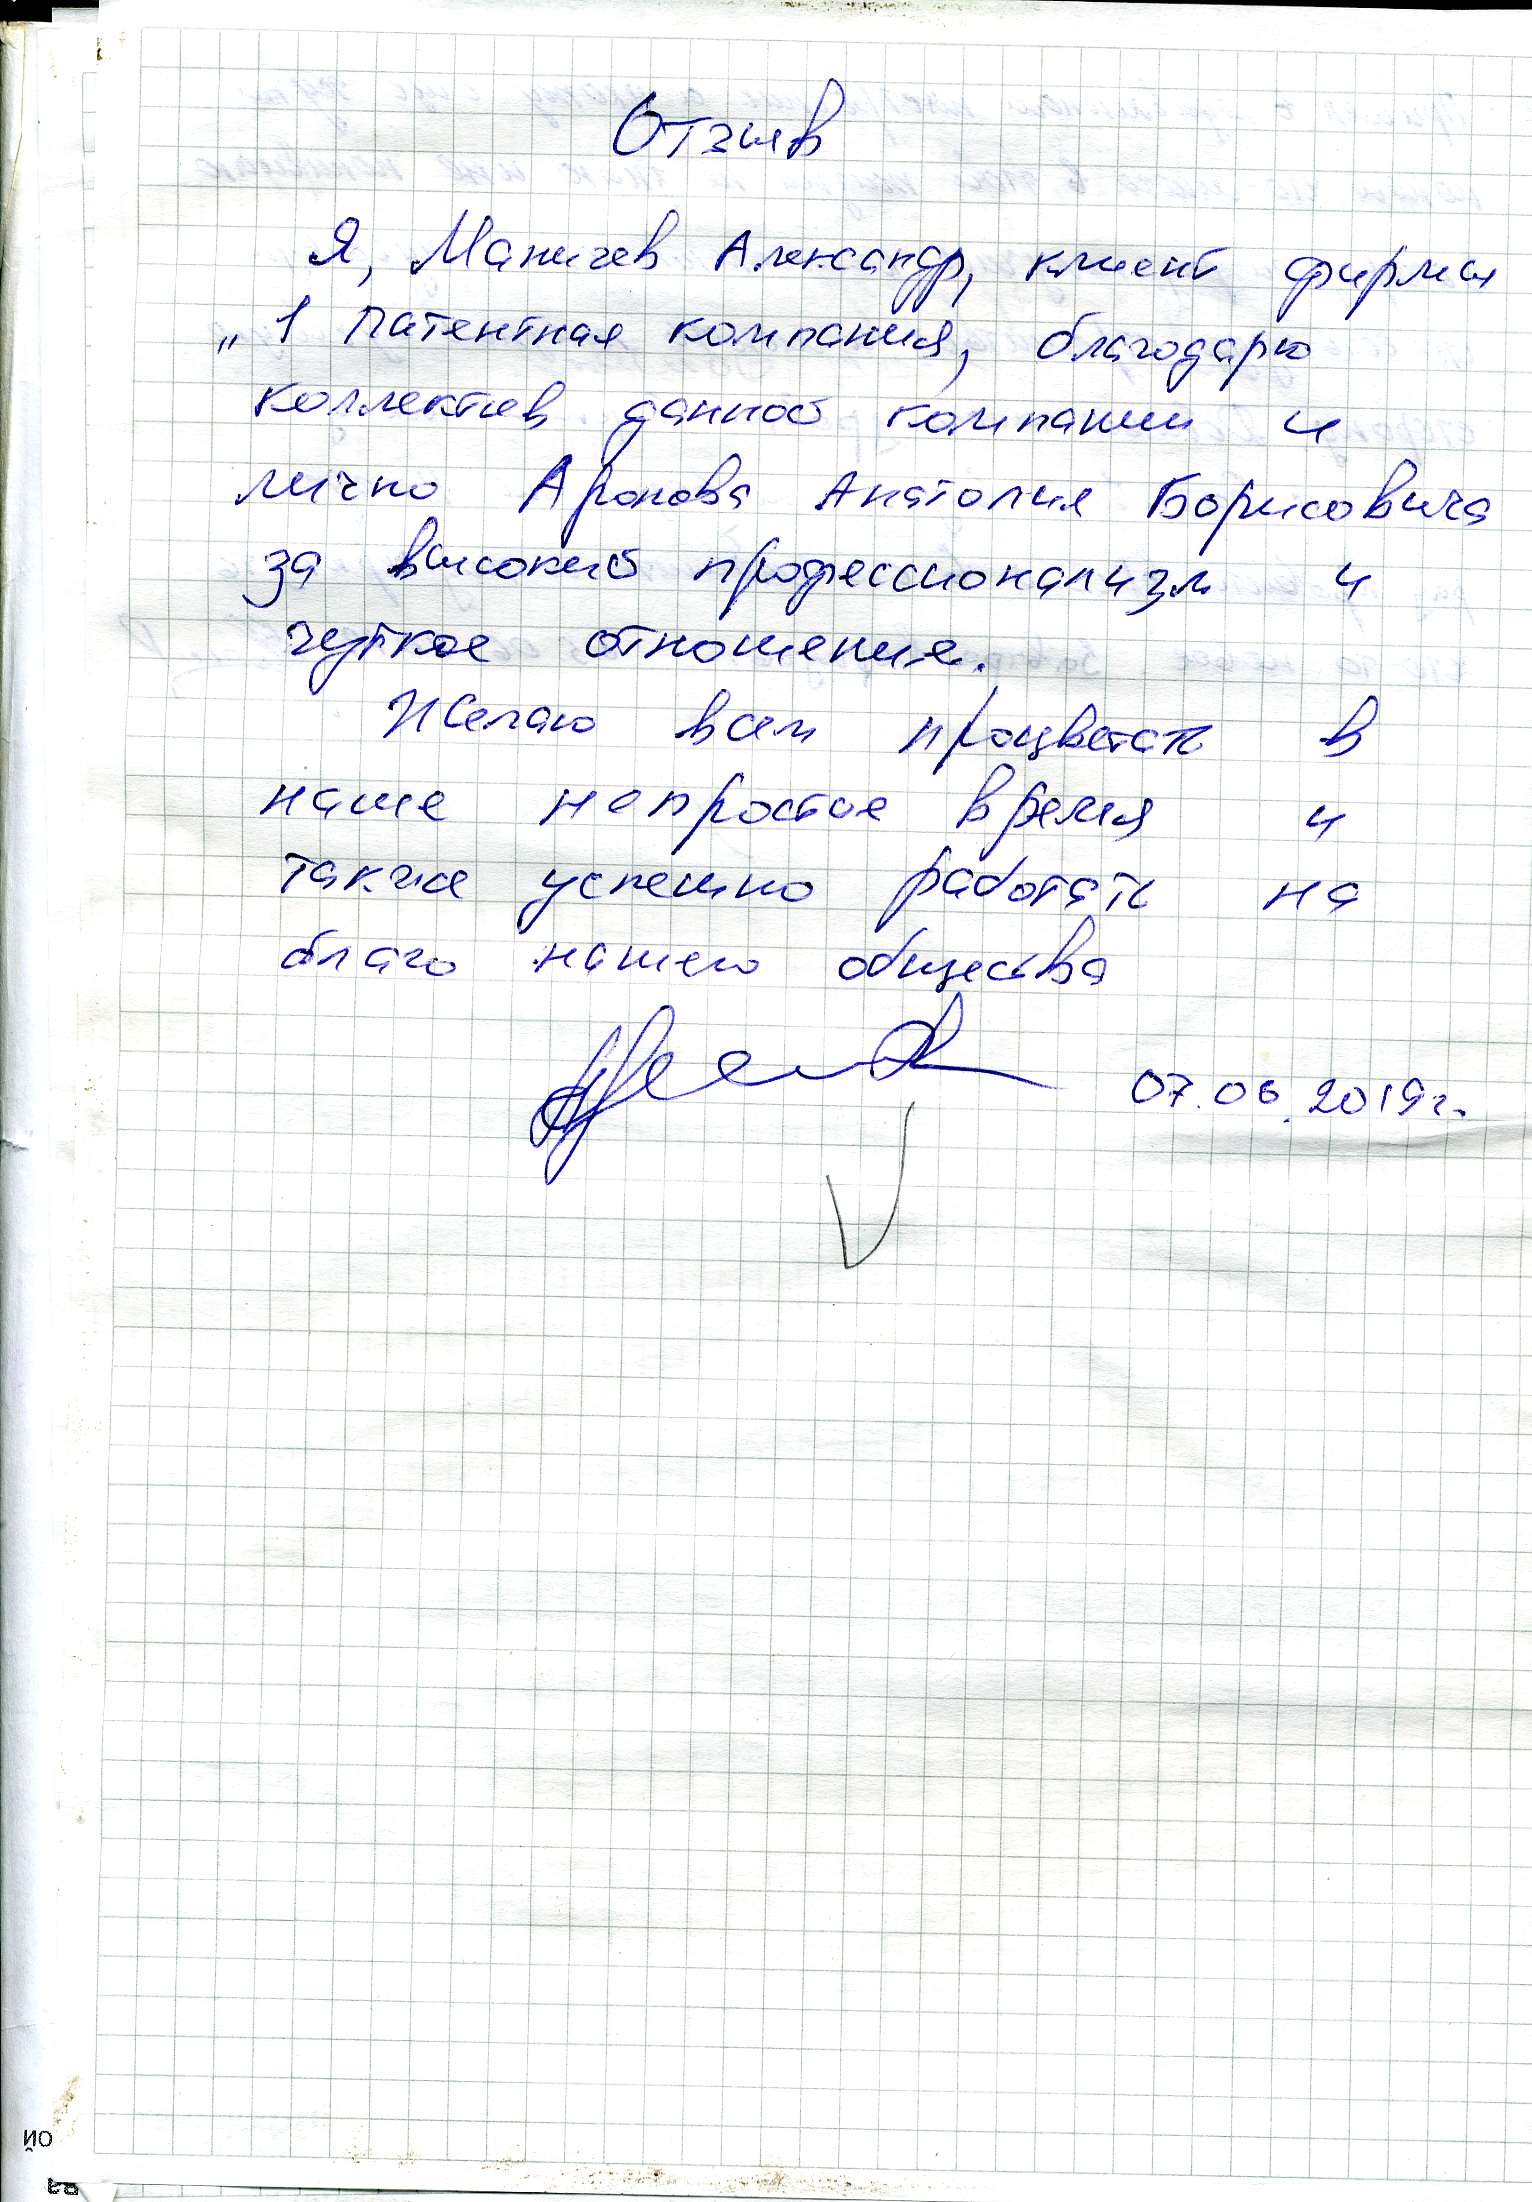 Отзыв
Я, Маничев Александр, клиент фирмы
„1 Патентная компания, благодарю
коллектив данной компании и
лично Аронова Анатолия Борисовича
за высокий профессионализм и
чуткое отношение.
Желаю всем процветать в
наше непростое время и
также успешно работать на
благо нашего общества
07.06.2019г.
ой